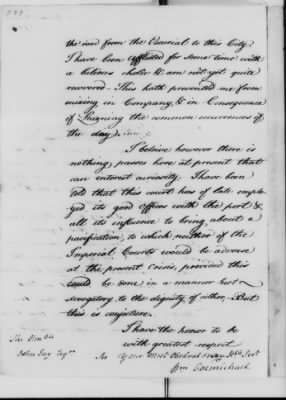 the road from the Escurial to this City.
I have been afflicted for some time with
a bilious cholic & am not yet quite
recovered - This hath prevented me from
mixing in Company, & in Consequence
of Learning the common occurrences of
the day.
I beleive however there is
nothing passes here at present that
can interest curiosity. I have been
told that this court has of late employ-
ged its good offices with the port &
all its influence to bring about a
pacification, to which neither of the
Imperial Courts would be adverse
at the present Crisis, provided this
could be done in a manner not
derogatory to the dignity of either. But
this is conjecture.
I have the honor to be
with greatest respect
Sir Your Most Obedient
Wm Carmichael
The Honble
John Jay Esqre